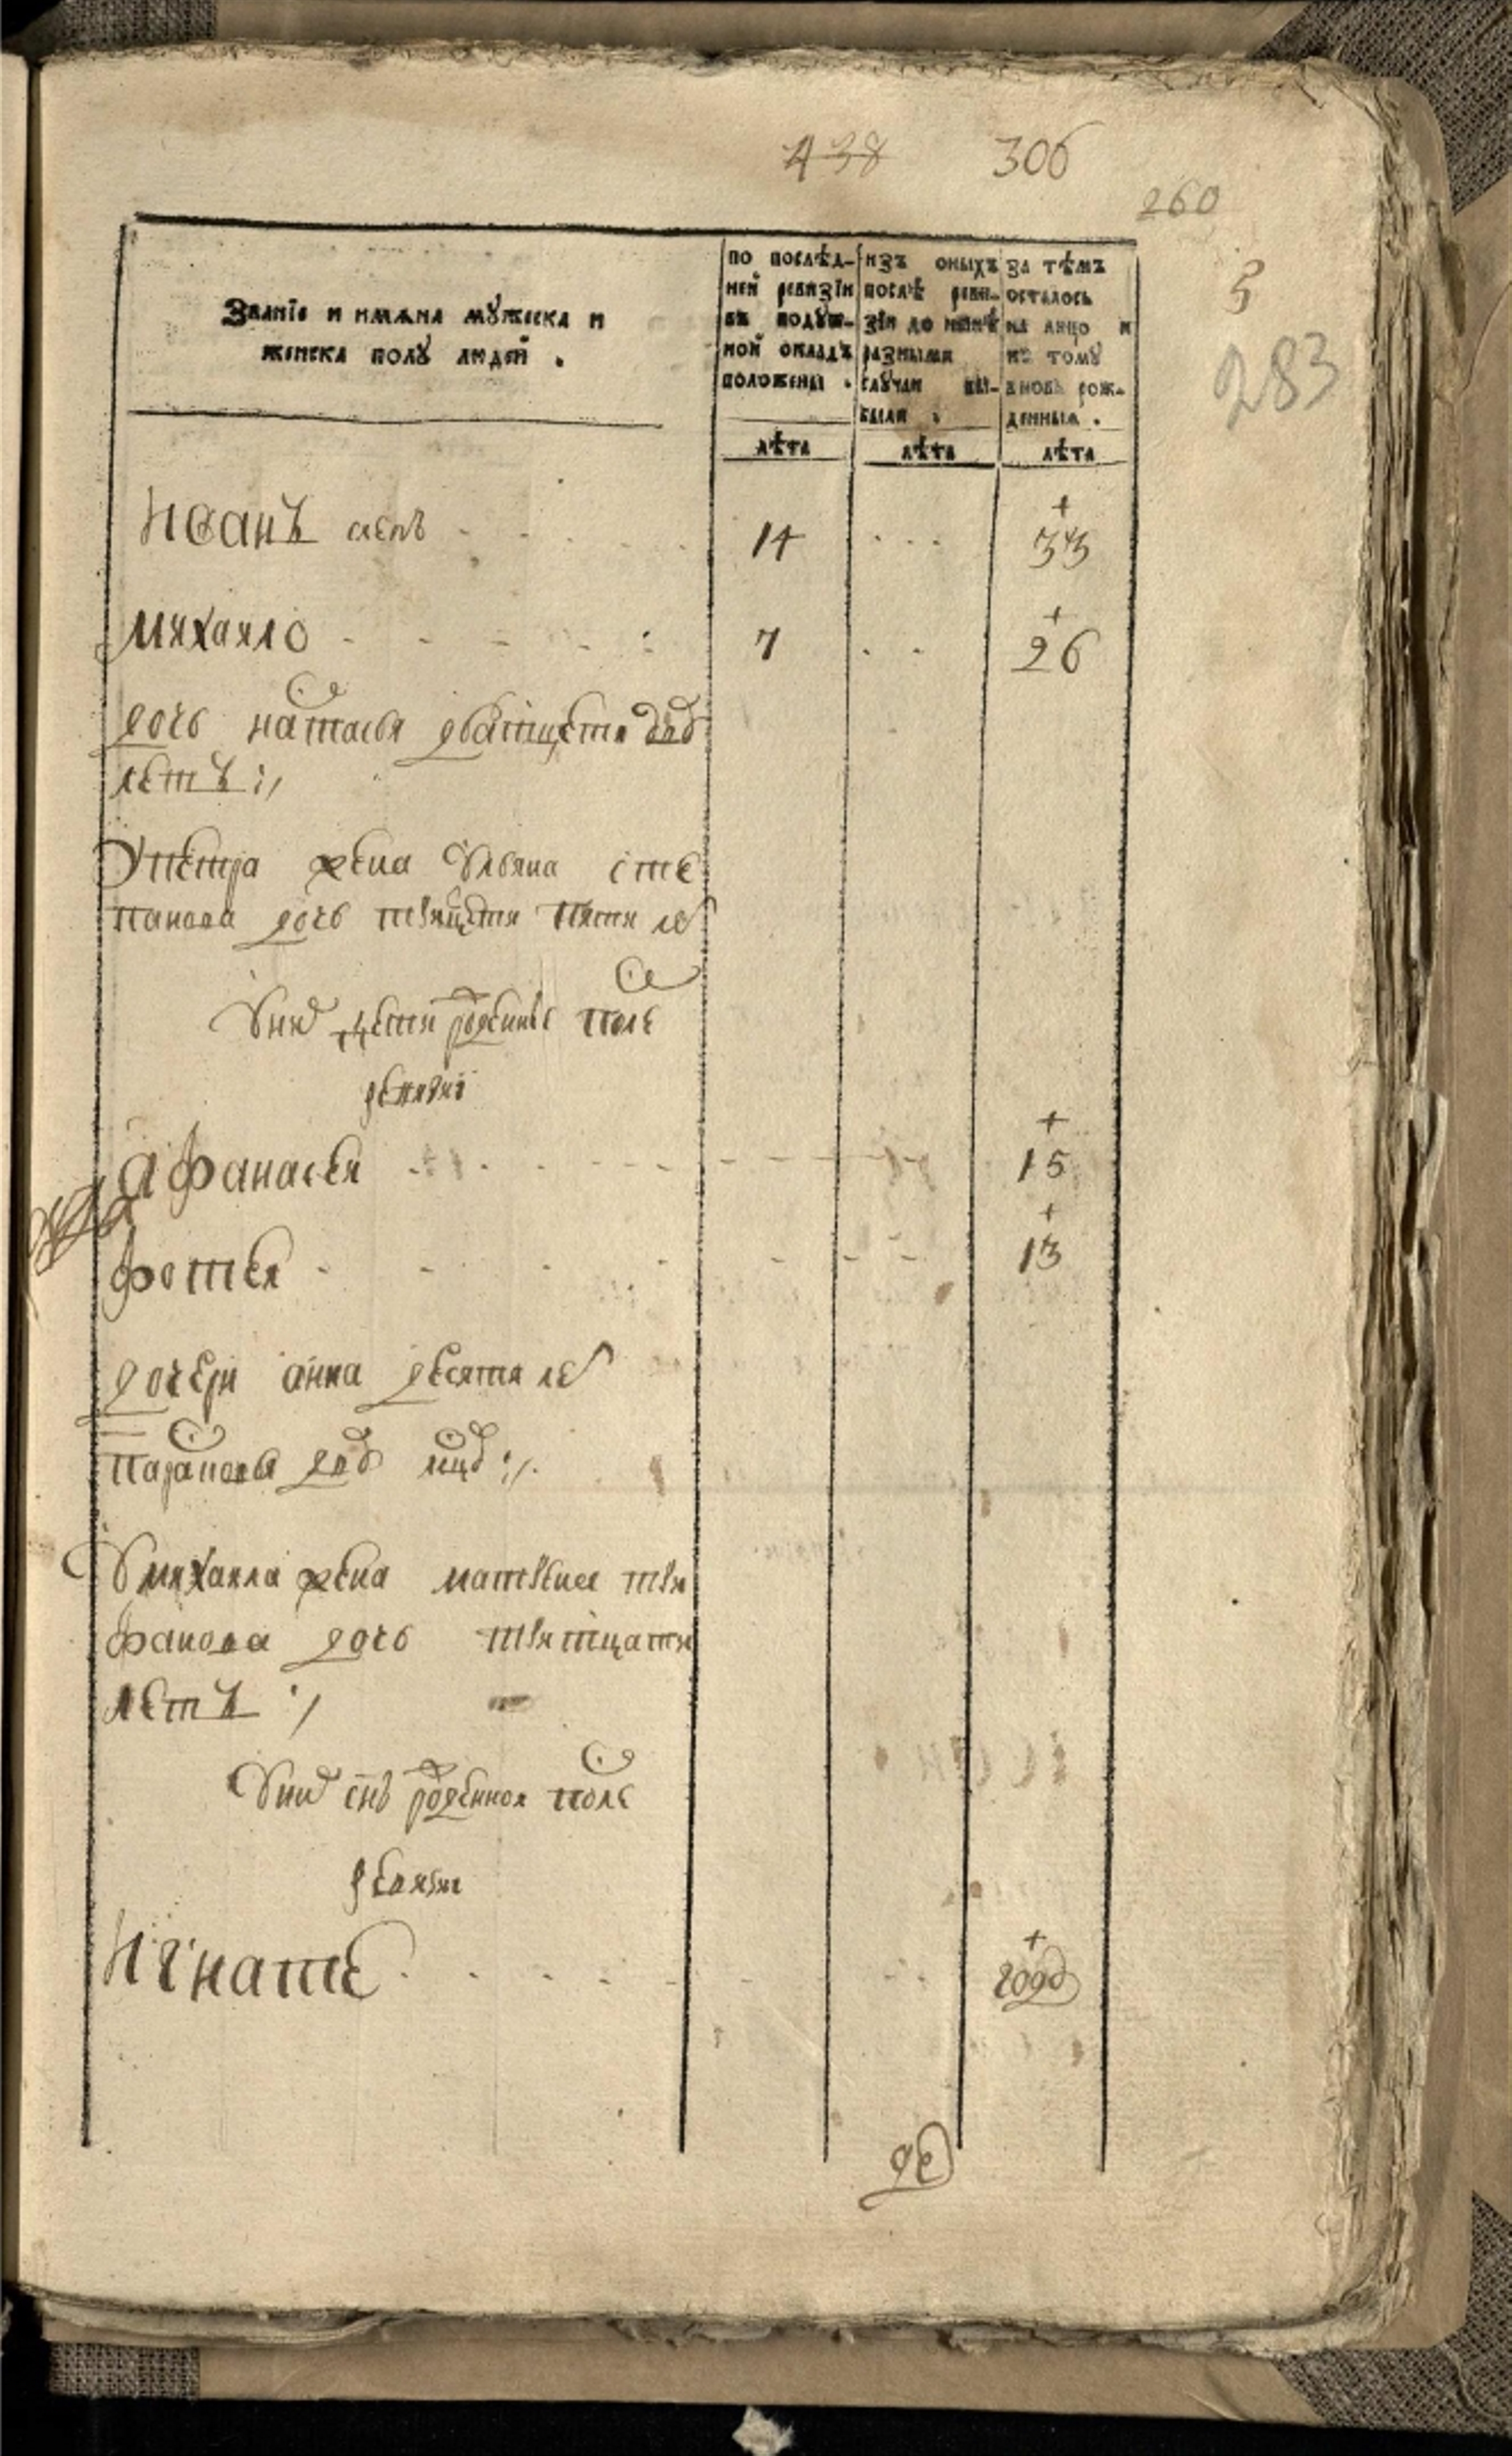 438 306
260
3
283
Званїе и имѧна мꙋжеска и
женска полꙋ людей .
по послѣд-
ней ревизїи
въ подꙋш-
ной окладъ
положены .
изъ оныхъ
послѣ реви-
зїи до нынѣ
разными
слꙋчаи вы-
были .
за тѣмъ
осталось
на лицо и
къ томꙋ
вновь рож-
денныя .
лѣта лѣта лѣта
Иванъ 14 33
михаило 7 26
дочь настасья дватцети
летъ
Упетра жена Ульяна сте
панова дочь трицети пяти ле
Уних дети рожденые после
ревизиї
афанасеи 15
фотеи 13
дочери анна десяти ле
парасковья
Умихаила жена матрена три
фанова дочь тритцати
летъ
Уних снъ рожденнои после
ревизии
Игнатеи годъ